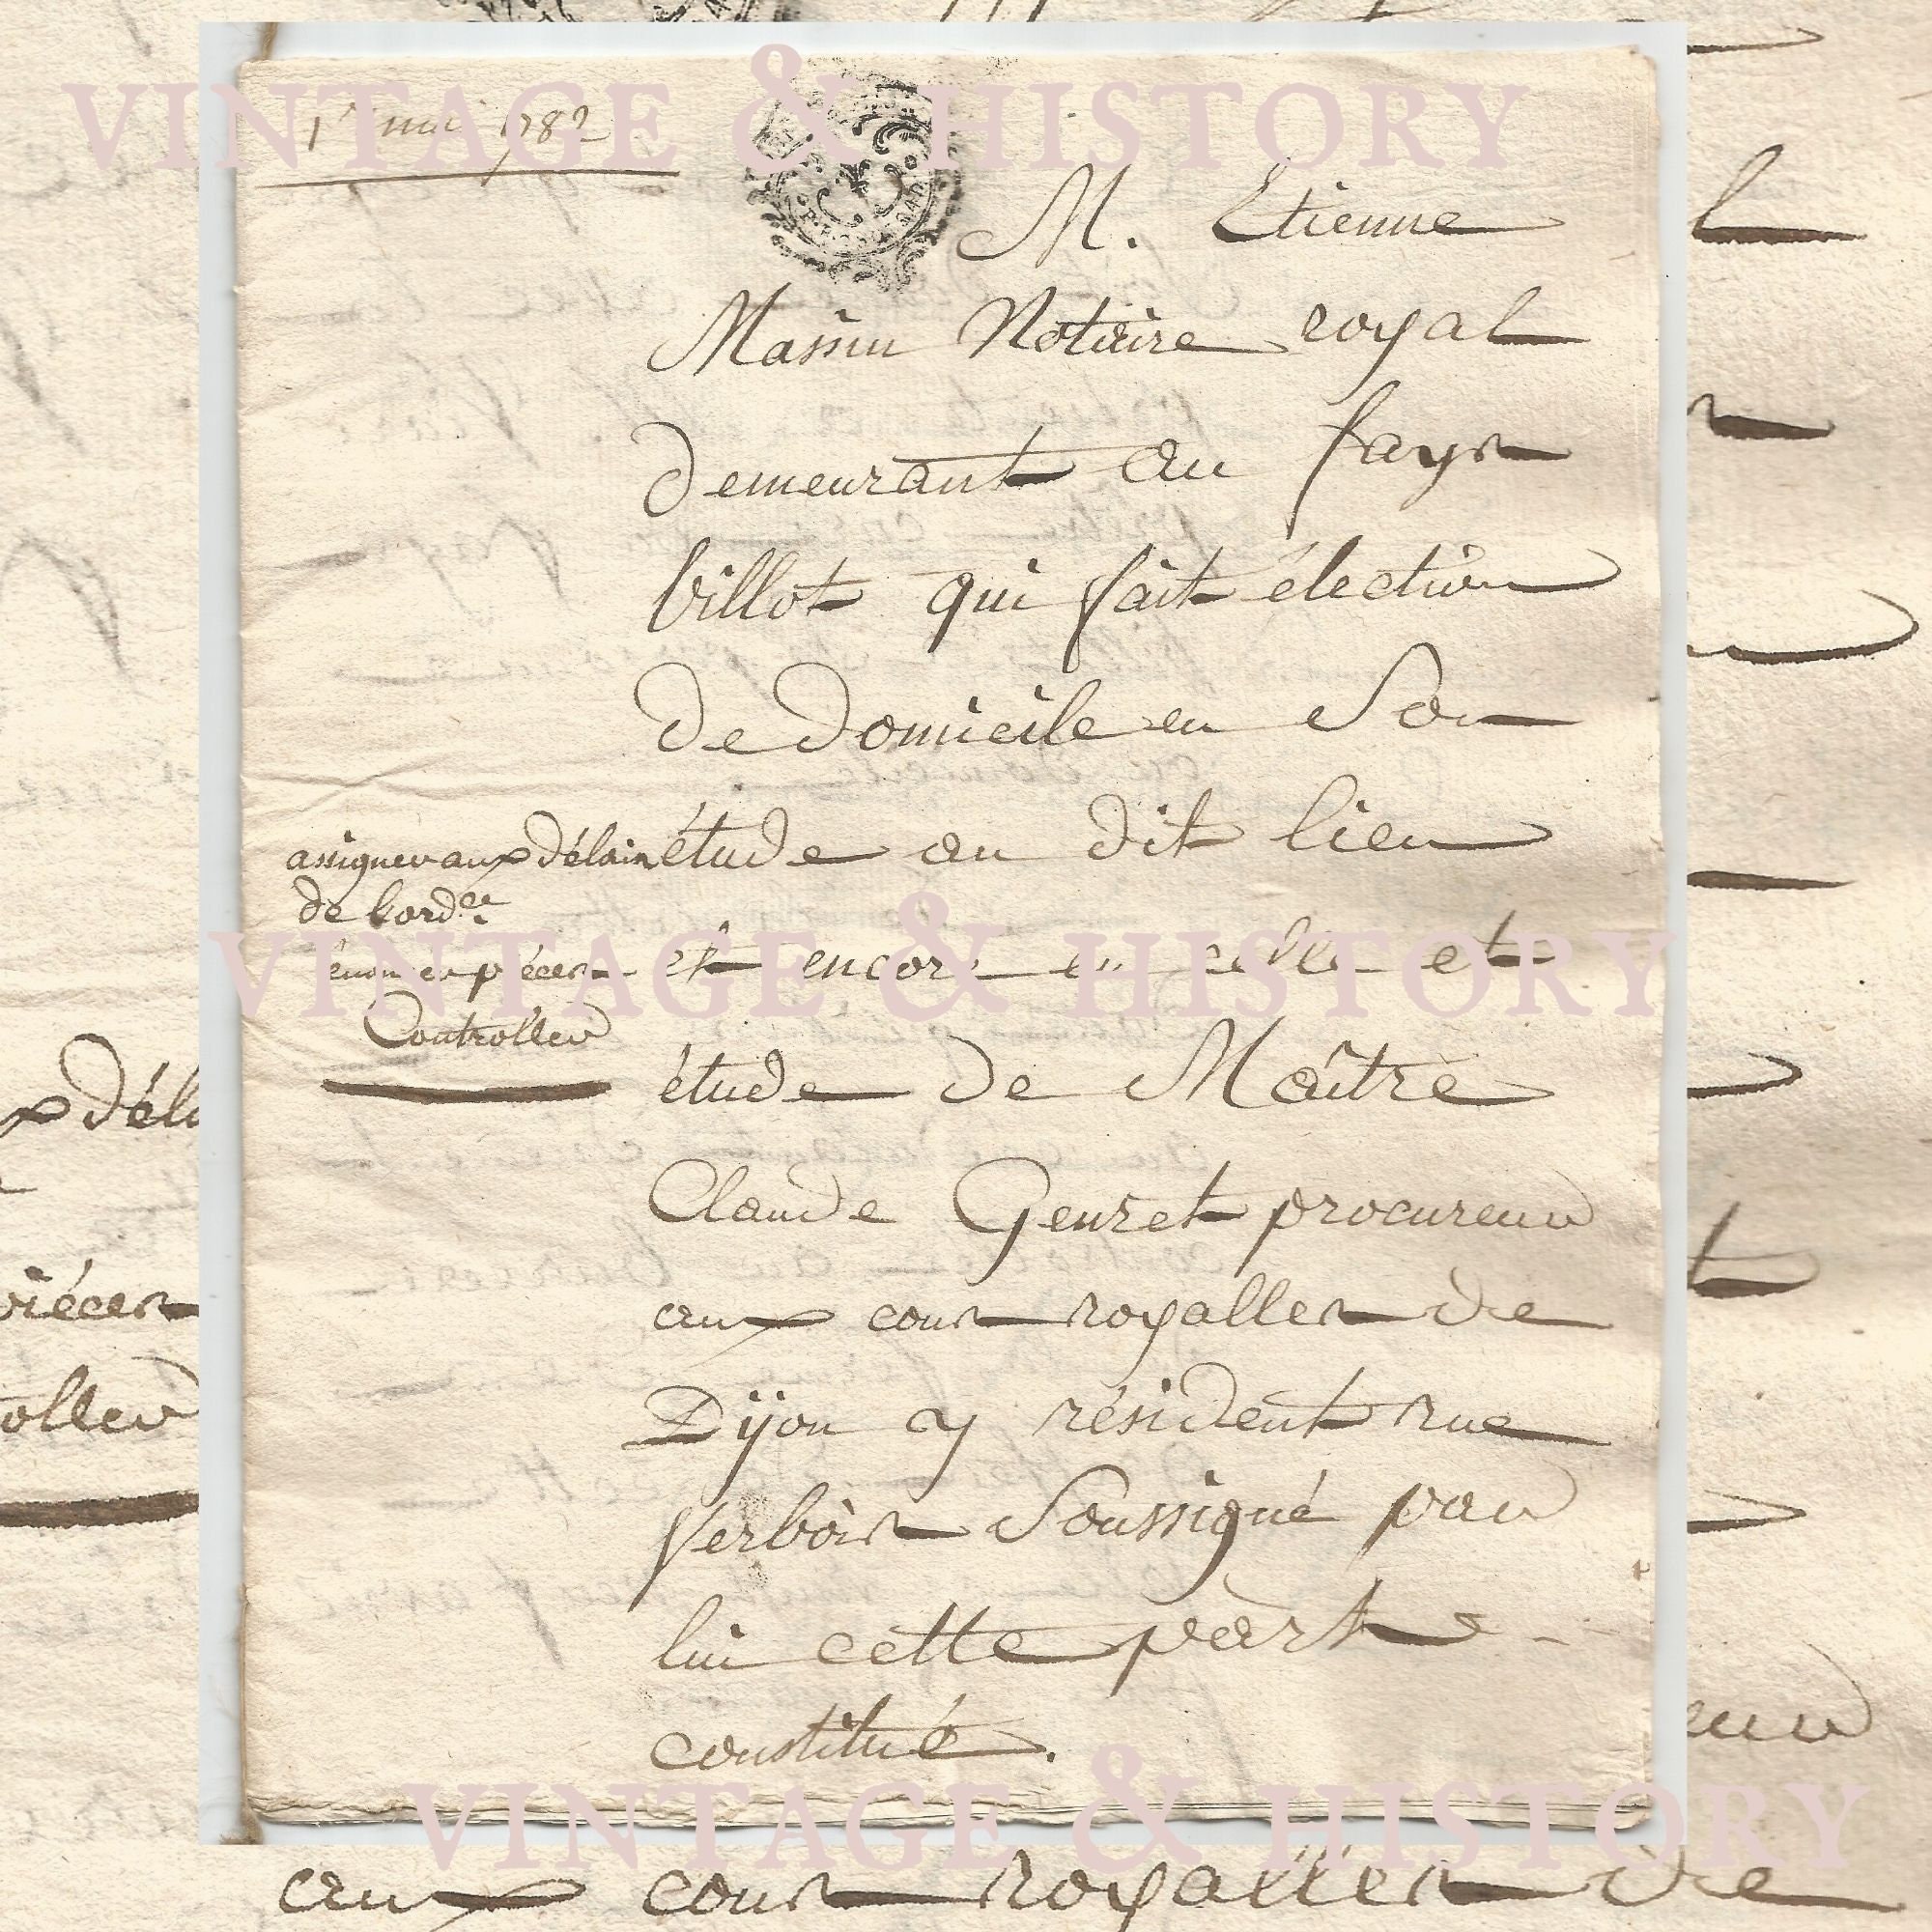 VINTAGE & HISTORY
1er mai 1782
M. Etienne
Massin Notaire royal
demeurant au fays
billot qui fait élection
de domicile en Son
étude au dit lieu
assigner aux délais
de lord.ce
pièces
Controller
et encore en celle et
étude de Maître
Claude Genret procureur
aux cours royalles de
Dijon y résident rue
Verbois Soussigné par
lui cette part
constitué.
VINTAGE & HISTORY
VINTAGE & HISTORY
aux cours royalles de